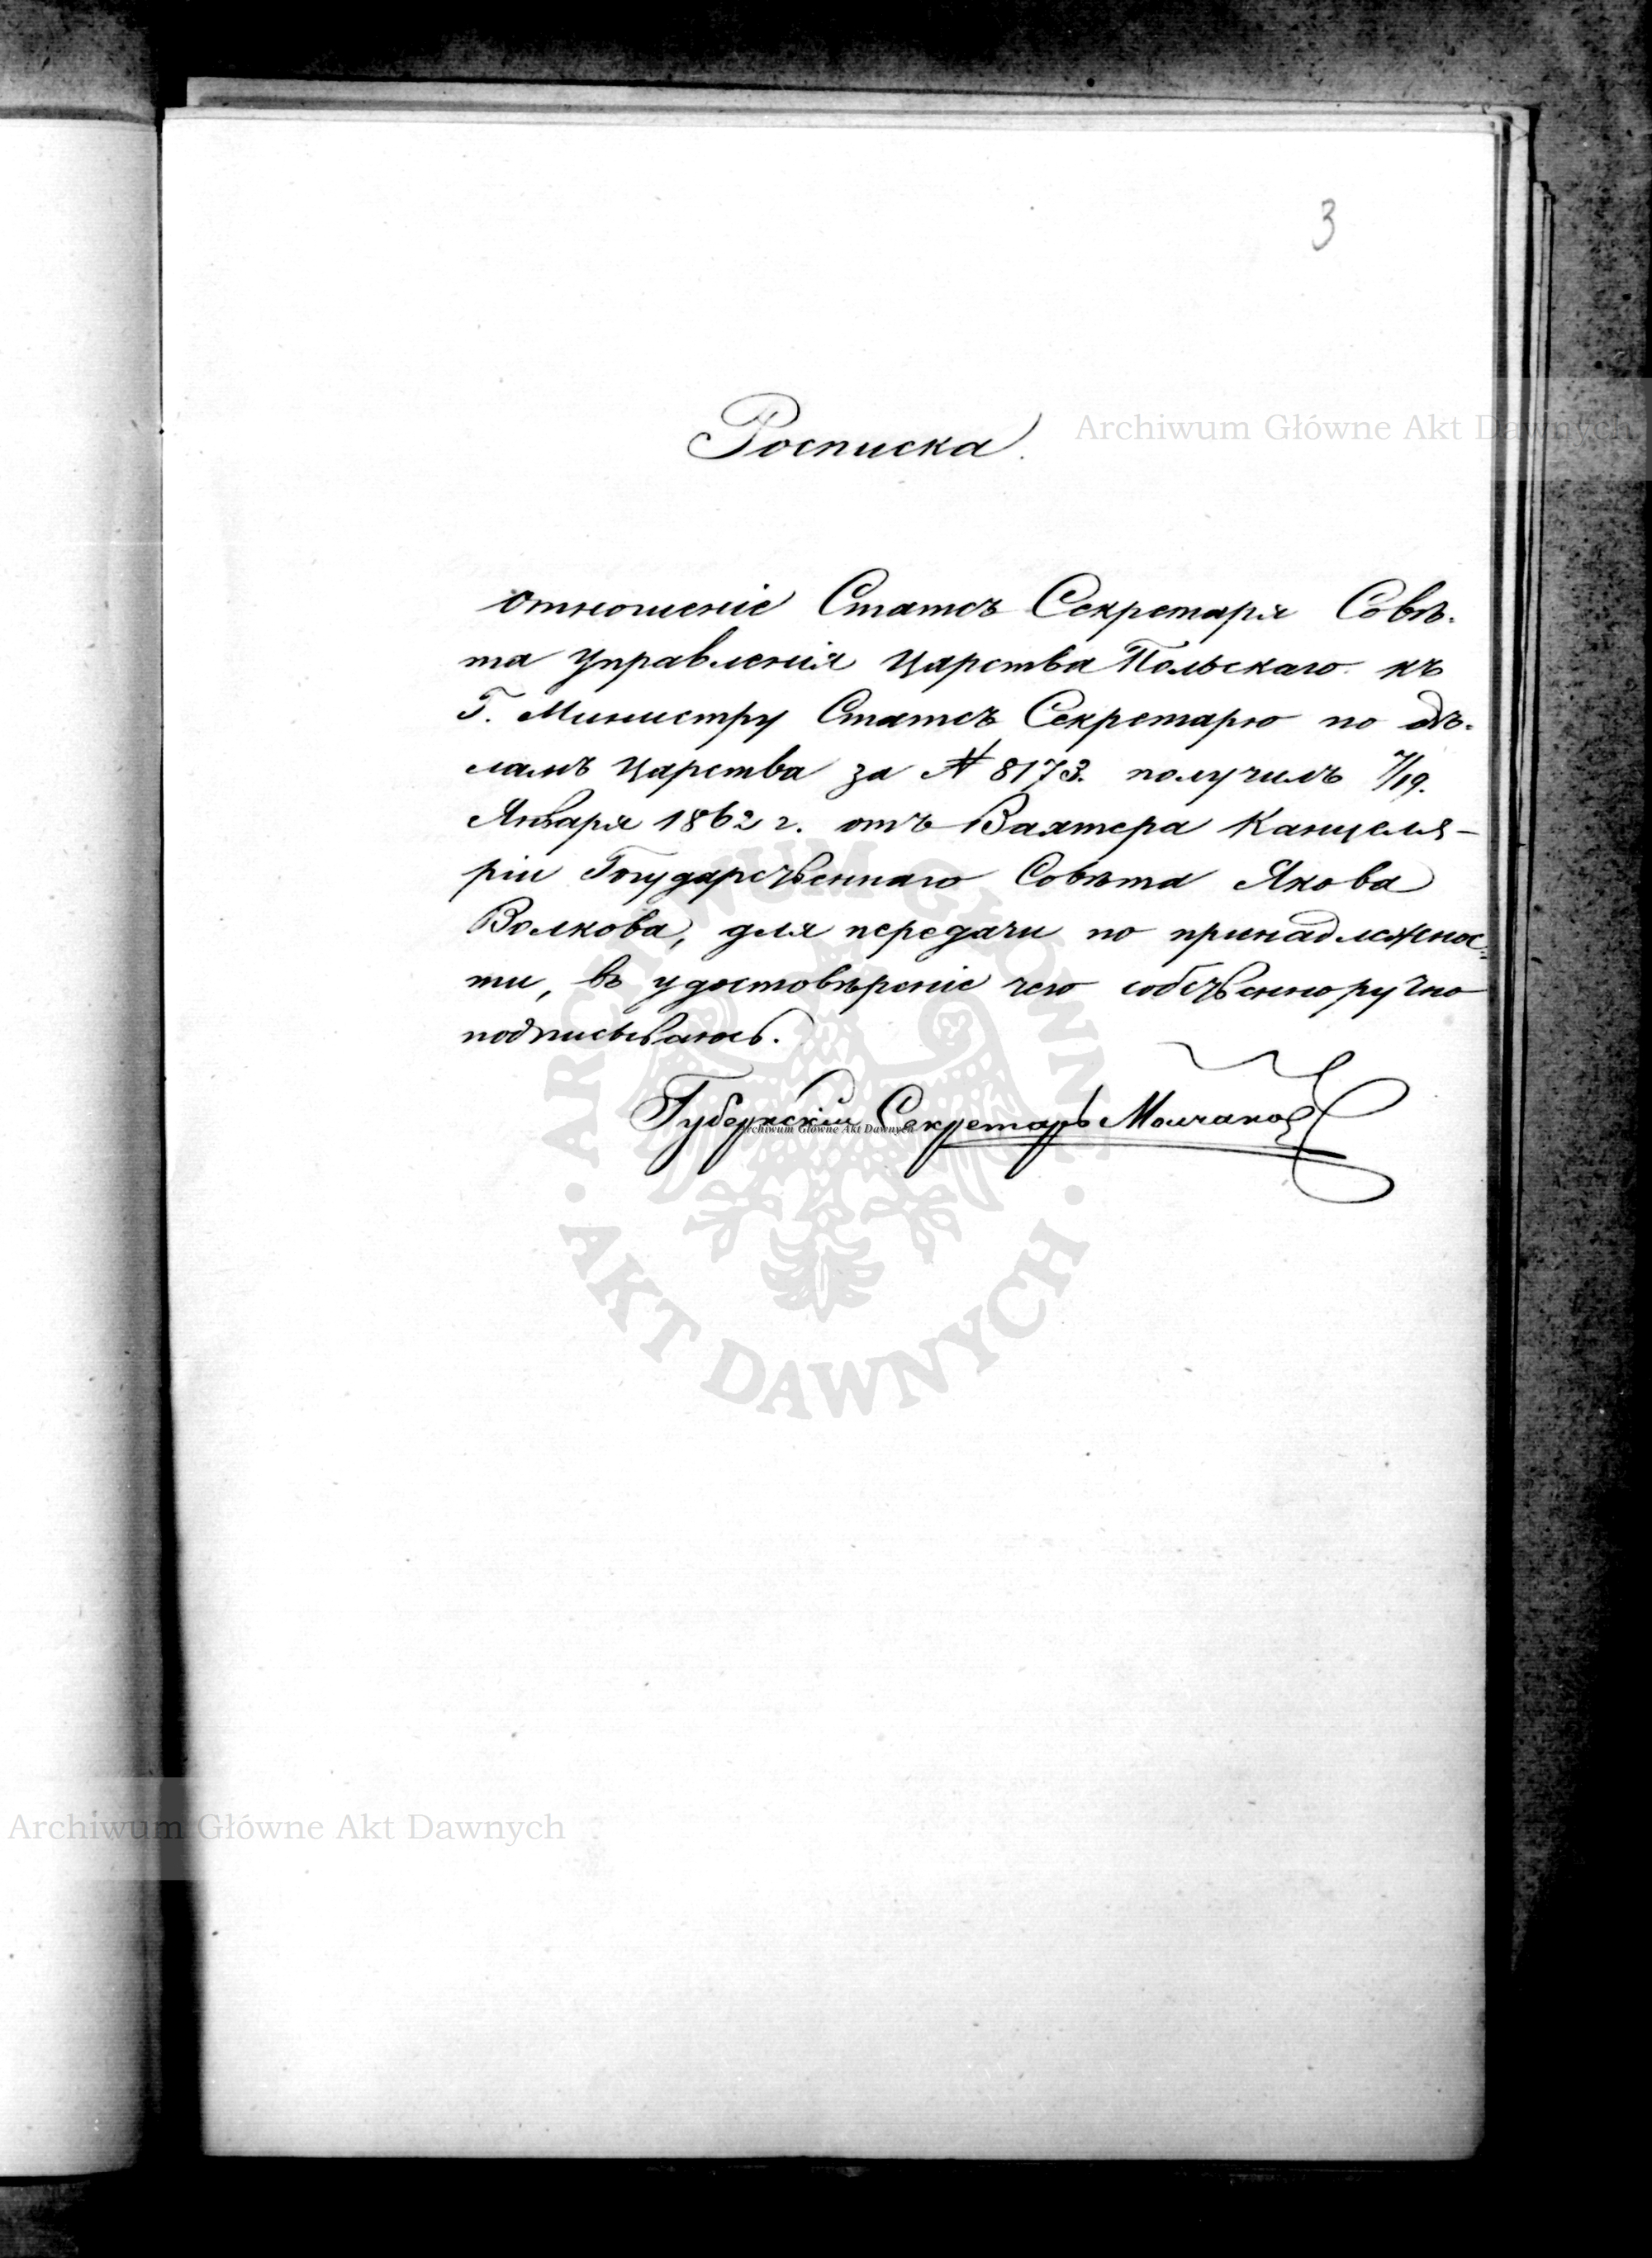 3
Росписка.
Archiwum Główne Akt Dawnych
Отношеніе Статсъ Секретаря Совѣ-
та Управленія Царства Польскаго къ
Г. Министру Статсъ Секретарю по дѣ-
ламъ Царства за № 8173. получилъ 7/19.
Января 1862 г. отъ Вахтера Канцеля-
ріи Государственнаго Совѣта Якова
Волкова, для передачи по принадлежнос-
ти, въ удостовѣреніе чего собственноручно
подписываюсь.
Губернскій Секретарь Молчанов
Archiwum Główne Akt Dawnych
ARCHIWUM GŁÓWNE
· AKT DAWNYCH ·
Archiwum Główne Akt Dawnych